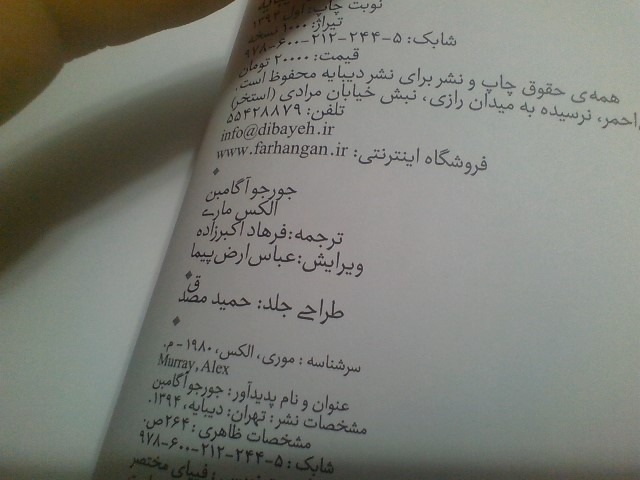 نوبت چاپ: اول ۱۳۹۴
تیراژ: ۱۰۰۰ نسخه
شابک: ۵-۲۴۴-۲۱۲-۶۰۰-۹۷۸
قیمت: ۲۰۰۰۰ تومان
همه‌ی حقوق چاپ و نشر برای نشر دیبایه محفوظ است.
احمر، نرسیده به میدان رازی، نبش خیابان مرادی (استخر)
تلفن: ۵۵۴۲۸۸۷۹
info@dibayeh.ir
فروشگاه اینترنتی: www.farhangan.ir
جورجو آگامبن
الکس ماری
ترجمه: فرهاد اکبرزاده
ویرایش: عباس ارض‌پیما
طراحی جلد: حمید مصدق
سرشناسه: موری، الکس، ۱۹۸۰ - م.
Murray, Alex
عنوان و نام پدیدآور: جورجو آگامبن
مشخصات نشر: تهران: دیبایه، ۱۳۹۴.
مشخصات ظاهری: ۲۶۴ص.
شابک: ۵-۲۴۴-۲۱۲-۶۰۰-۹۷۸
فیپای مختصر